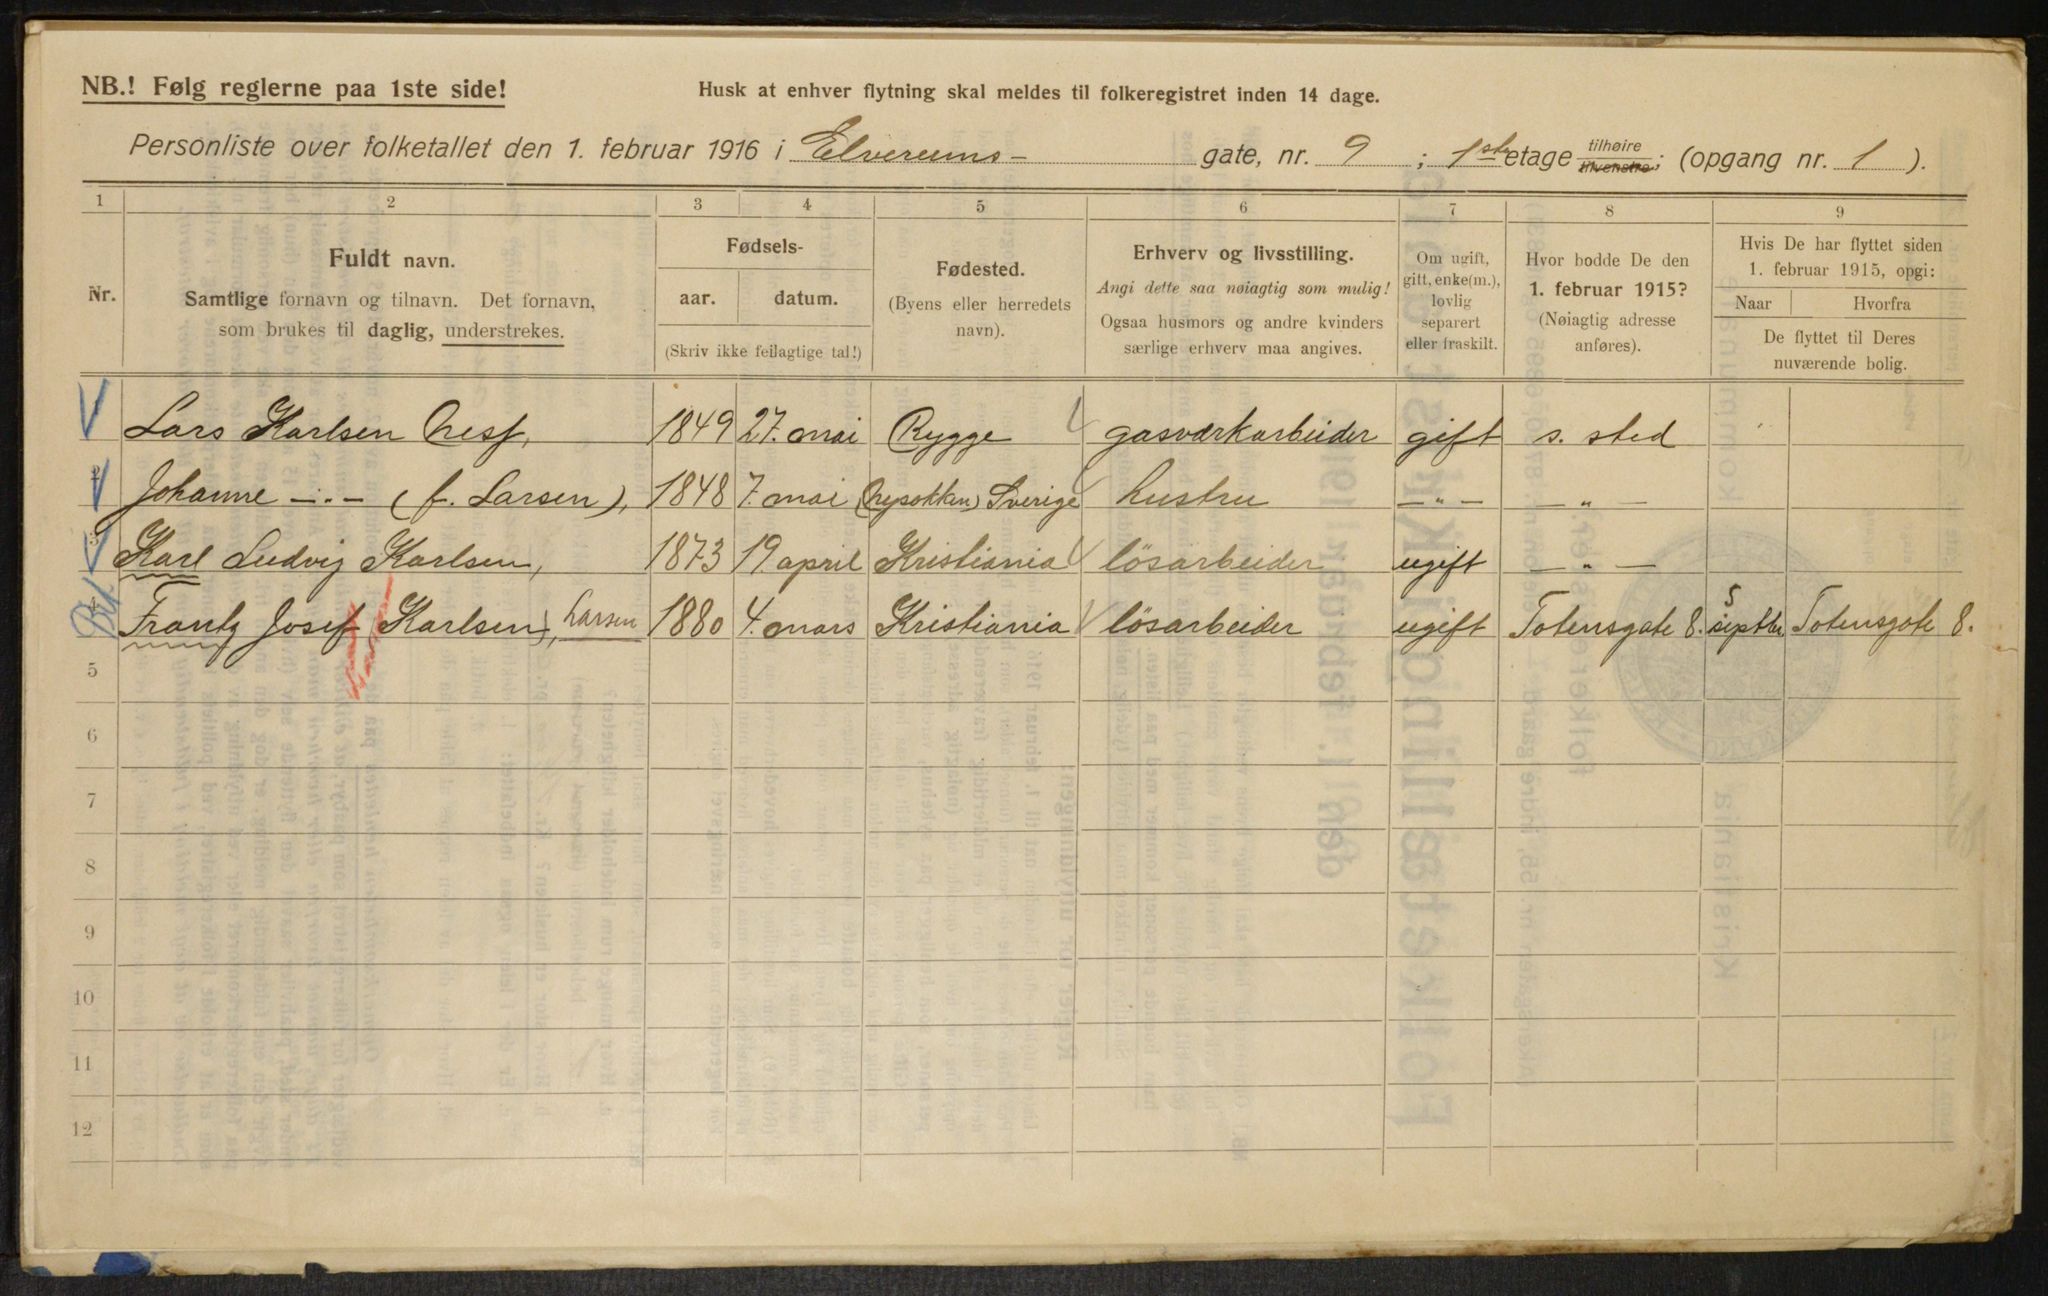 NB.! Følg reglerne paa 1ste side!
Husk at enhver flytning skal meldes til folkeregistret inden 14 dage.
Personliste over folketallet den 1. februar 1916 i Elverums- gate, nr. 9 ; 1ste etage tilhøire tilvenstre; (opgang nr. 1 ).
1 2 3 4 5 6 7 8 9
Nr.
Fuldt navn.
Samtlige fornavn og tilnavn. Det fornavn,
som brukes til daglig, understrekes.
Fødsels-
aar. datum.
(Skriv ikke feilagtige tal!)
Fødested.
(Byens eller herredets
navn).
Erhverv og livsstilling.
Angi dette saa nøiagtig som mulig!
Ogsaa husmors og andre kvinders
særlige erhverv maa angives.
Om ugift,
gift, enke(m.),
lovlig
separert
eller fraskilt.
Hvor bodde De den
1. februar 1915?
(Nøiagtig adresse
anføres).
Hvis De har flyttet siden
1. februar 1915, opgi:
Naar Hvorfra
De flyttet til Deres
nuværende bolig.
Lars Karlsen 1849 27. mai Rygge gasværkarbeider gift s. sted
2 Johanne -"- (f. Larsen), 1848 7. mai Sverige hustru -"- -"-
3 Karl Ludvig Karlsen, 1873 19. april Kristiania løsarbeider ugift -"-
4 Frantz Josef Karlsen, Larsen 1880 4. mars Kristiania løsarbeider ugift Totensgate 8. 5 septbr. Totensgate 8.
5
6
7
8
9
10
11
12